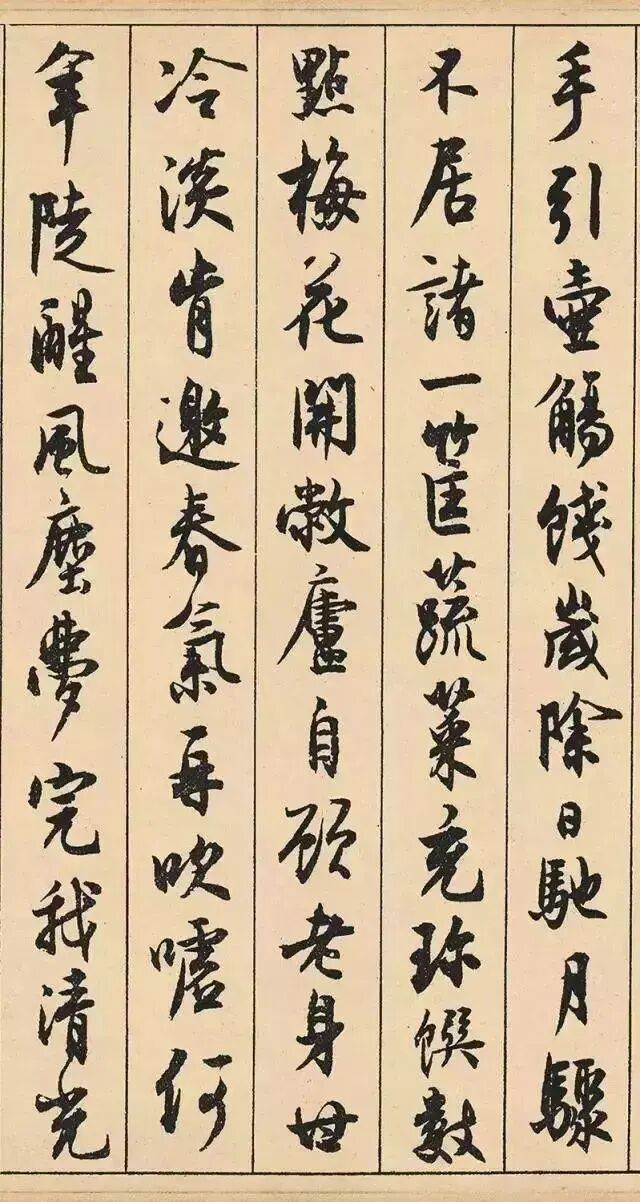 手引壺觴餞歲除日馳月驟
不居諸一筐蔬菜充珍饌數
點梅花開敝廬自顧老身世
冷淡肯邀春氣再吹噓何
年陡醒風塵夢完我清光